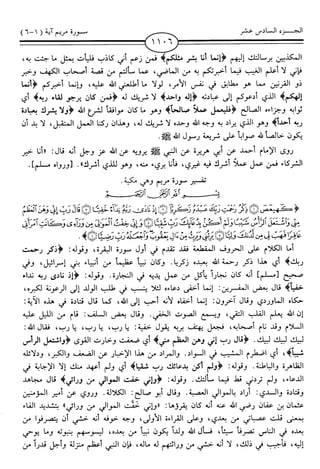 الجزء السادس عشر
١١٠٦
سورة مريم آية (١-٦)
المكذبين برسالتك إليهم ﴿إنما أنا بشر مثلكم﴾ فمن زعم أني كاذب فليأت بمثل ما جئت به،
فإني لا أعلم الغيب فيما أخبرتكم به من الماضي، عما سألتم من قصة أصحاب الكهف وخبر
ذو القرنين مما هو مطابق في نفس الأمر، لولا ما أطلعني الله عليه، وإنما أخبركم ﴿أنما
إلهكم﴾ الذي أدعوكم إلى عبادته ﴿إله واحد﴾ لا شريك له ﴿فمن كان يرجو لقاء ربه﴾ أي
ثوابه وجزاءه الصالح ﴿فليعمل عملاً صالحاً﴾ وهو ما كان موافقاً لشرع الله ﴿ولا يشرك بعبادة
ربه أحداً﴾ وهو الذي يراد به وجه الله وحده لا شريك له، وهذان ركنا العمل المتقبل، لا بد أن
يكون خالصاً لله صواباً على شريعة رسول الله ﷺ.
روى الإمام أحمد عن أبي هريرة عن النبي ﷺ يرويه عن الله عز وجل أنه قال: «أنا خير
الشركاء فمن عمل عملاً أشرك فيه غيري، فأنا بريء منه، وهو للذي أشرك». [ورواه مسلم].
تفسير سورة مريم وهي مكية
بسم الله الرحمن الرحيم
﴿كهيعص ۝ ذكر رحمت ربك عبده زكريا ۝ إذ نادى ربه نداء خفيا ۝ قال رب إني وهن العظم
مني واشتعل الرأس شيبا ولم أكن بدعائك رب شقيا ۝ وإني خفت الموالي من وراءي وكانت امرأتي
عاقرا فهب لي من لدنك وليا ۝ يرثني ويرث من آل يعقوب واجعله رب رضيا ۝﴾
أما الكلام على الحروف المقطعة فقد تقدم في أول سورة البقرة، وقوله: ﴿ذكر رحمت
ربك﴾ أي هذا ذكر رحمة الله بعبده زكريا. وكان نبياً عظيماً من أنبياء بني إسرائيل، وفي
صحيح [مسلم] أنه كان نجاراً يأكل من عمل يديه في النجارة. وقوله: ﴿إذ نادى ربه نداء
خفياً﴾ قال بعض المفسرين: إنما أخفى دعاءه لئلا ينسب في طلب الولد إلى الرعونة لكبره،
حكاه الماوردي وقال آخرون: إنما أخفاه لأنه أحب إلى الله، كما قال قتادة في هذه الآية:
إن الله يعلم القلب التقي، ويسمع الصوت الخفي. وقال بعض السلف: قام من الليل عليه
السلام وقد نام أصحابه، فجعل يهتف بربه يقول خفية: يا رب، يا رب، يا رب، فقال الله:
لبيك لبيك لبيك. ﴿قال رب إني وهن العظم مني﴾ أي ضعفت وخارت القوى ﴿واشتعل الرأس
شيباً﴾، أي اضطرم المشيب في السواد. والمراد من هذا الإخبار عن الضعف والكبر، ودلائله
الظاهرة والباطنة. وقوله: ﴿ولم أكن بدعائك رب شقياً﴾ أي ولم أعهد منك إلا الإجابة في
الدعاء، ولم تردني قط فيما سألتك. وقوله: ﴿وإني خفت الموالي من ورائي﴾ قال مجاهد
وقتادة والسدي: أراد بالموالي العصبة. وقال أبو صالح: الكلالة. وروي عن أمير المؤمنين
عثمان بن عفان رضي الله عنه أنه كان يقرؤها: «وإني خفت الموالي من ورائي» بتشديد الفاء
بمعنى قلت عصباتي من بعدي، وعلى القراءة الأولى، وجه خوفه أنه خشي أن يتصرفوا من
بعده في الناس تصرفاً سيئاً، فسأل الله ولداً يكون نبياً من بعده، ليسوسهم بنبوته وما يوحى
إليه، فأجيب في ذلك، لا أنه خشي من وراثتهم له ماله، فإن النبي أعظم منزلة وأجل قدراً من